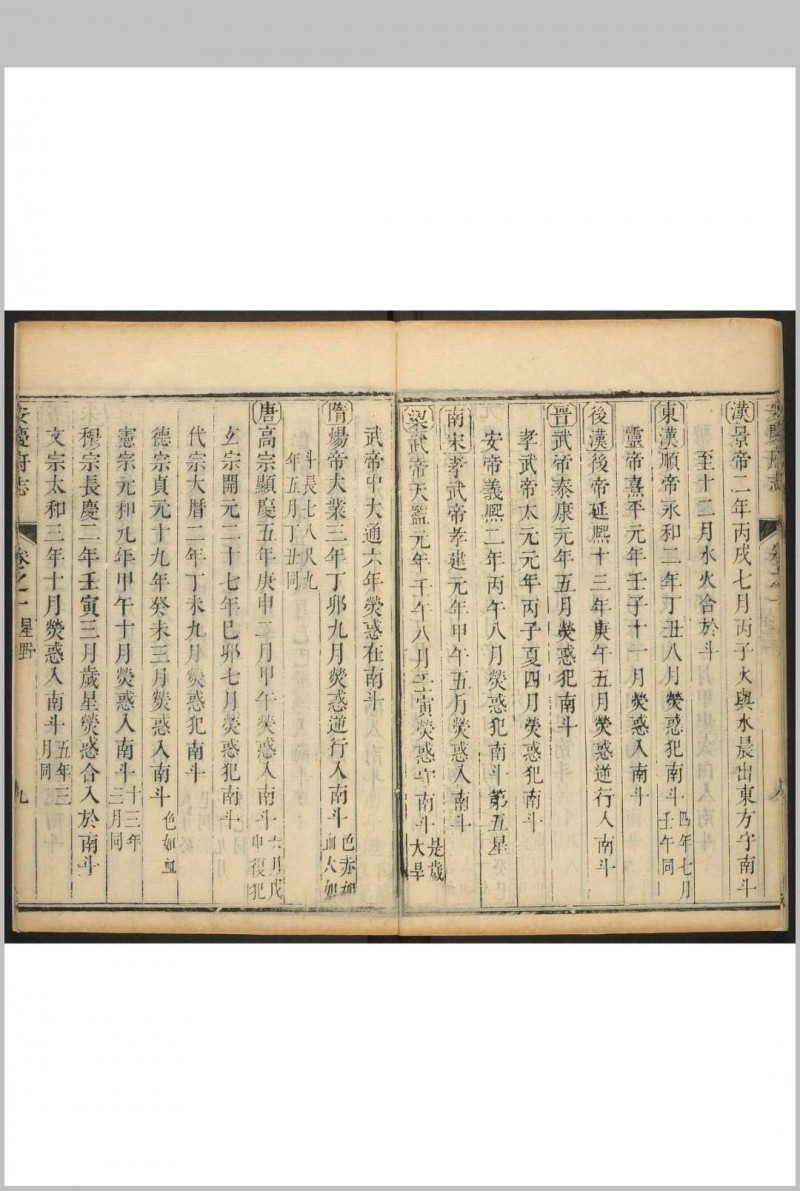 漢景帝二年丙戌七月丙子火與水晨出東方守南斗
至十二月水火合於斗
東漢順帝永和二年丁丑八月熒惑犯南斗四年七月壬午同
靈帝熹平元年壬子十一月熒惑入南斗
後漢後帝延熙十三年庚午五月熒惑逆行入南斗
晉武帝泰康元年五月熒惑犯南斗
孝武帝太元元年丙子夏四月熒惑犯南斗
安帝義熙二年丙午八月熒惑犯南斗第五星
南宋孝武帝孝建元年甲午五月熒惑入南斗
梁武帝天監元年壬午八月壬寅熒惑守南斗是歲大旱
武帝中大通六年熒惑在南斗
隋煬帝大業三年丁卯九月熒惑逆行入南斗色赤如血大如
斗長七八尺九年五月丁丑同
唐高宗顯慶五年庚申二月甲午熒惑入南斗六月戊申復犯
玄宗開元二十七年己卯七月熒惑犯南斗
代宗大曆二年丁未九月熒惑犯南斗
德宗貞元十九年癸未三月熒惑入南斗色如血
憲宗元和九年甲午十月熒惑入南斗十三年三月同
穆宗長慶二年壬寅三月歲星熒惑合入於南斗
文宗太和三年十月熒惑入南斗五年三月同
安慶府志 卷之一 星野 九